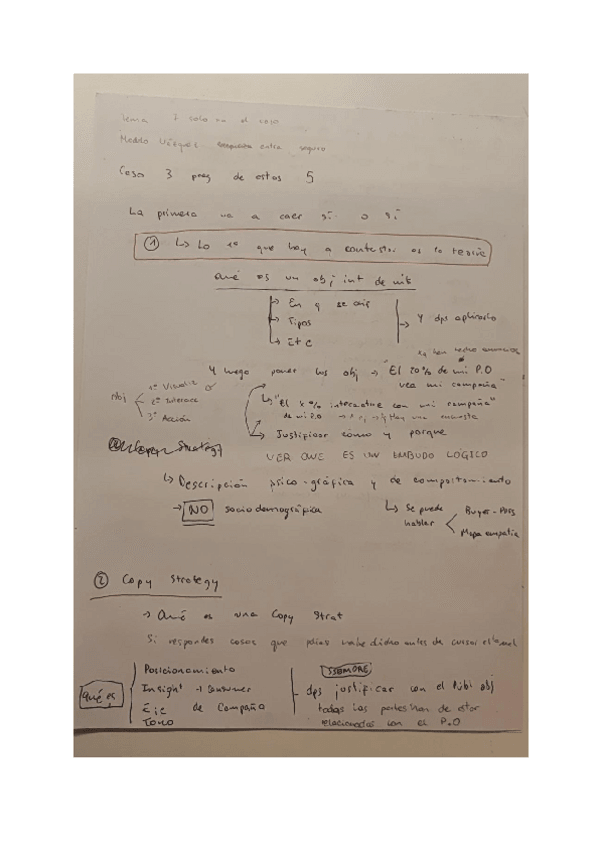 Tema 7 solo en el caso
Modelo Vásquez entra seguro
Caso 3 preg de estas 5
La primera va a caer sí o sí
① ↳ Lo 1º que hay a contestar es la teoría
Qué es un obj int de mkt
→ En q se
→ Tipos
→ Etc
→ Y dps aplicarlo
Y luego poner los obj → "El 20% de mi P.O
vea mi campaña"
Obj
1º Visualiz
2º Interacc
3º Acción
↳ "El x% interactue con mi campaña"
de mi P.O
→ Justificar cómo y porque
VER QUE ES UN EMBUDO LÓGICO
↳ Descripción psico-gráfica y de comportamiento
→ NO sociodemográfica
↳ Se puede hablar
Buyer-Pers
Mapa empatía
② Copy Strategy
→ Qué es una Copy Strat
Si respondes cosas que
Qué es
Posicionamiento
Insight → Consumer
Eje de Campaña
Tono
SIEMPRE
dps justificar con el Públ obj
todas las partes han de estar
relacionadas con el P.O